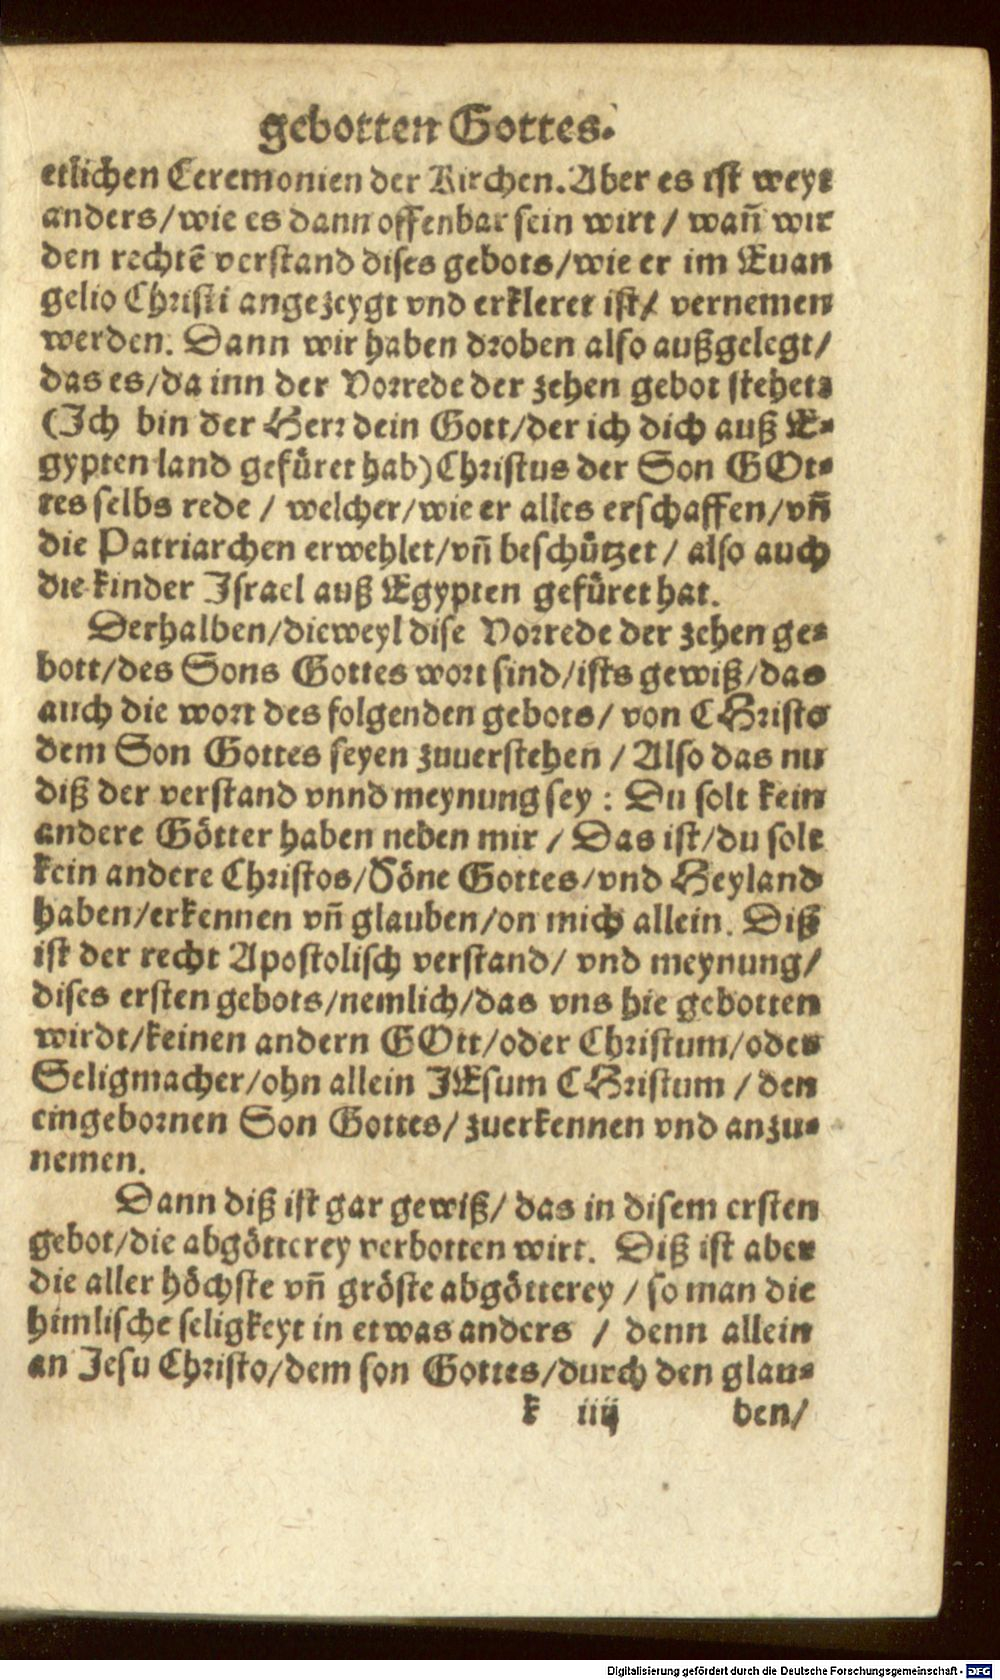 gebotten Gottes.
etlichen Ceremonien der Kirchen. Aber es ist weyt
anders/wie es dann offenbar sein wirt / wañ wir
den rechtē verstand dises gebots/wie er im Euan
gelio Christi angezeygt vnd erkleret ist/ vernemen
werden. Dann wir haben droben also außgelegt/
das es/da inn der Vorrede der zehen gebot stehet:
(Ich bin der Herr dein Gott/der ich dich auß E-
gypten land gefüret hab) Christus der Son GOt-
tes selbs rede / welcher/wie er alles erschaffen/vñ
die Patriarchen erwehlet/vñ beschützet / also auch
die kinder Israel auß Egypten gefüret hat.
Derhalben/dieweyl dise Vorrede der zehen ge-
bott/des Sons Gottes wort sind/ists gewiß/das
auch die wort des folgenden gebots/ von CHristo
dem Son Gottes seyen zuuerstehen / Also das nu
diß der verstand vnnd meynung sey : Du solt kein
andere Götter haben neben mir / Das ist/du solt
kein andere Christos/Söne Gottes/vnd Heyland
haben/erkennen vñ glauben/on mich allein. Diß
ist der recht Apostolisch verstand/ vnd meynung/
dises ersten gebots/nemlich/das vns hie gebotten
wirdt/keinen andern GOtt/oder Christum/oder
Seligmacher/ohn allein JEsum CHristum / den
eingebornen Son Gottes/ zuerkennen vnd anzu-
nemen.
Dann diß ist gar gewiß/ das in disem ersten
gebot/die abgötterey verbotten wirt. Diß ist aber
die aller höchste vñ gröste abgötterey / so man die
himlische seligkeyt in etwas anders / denn allein
an Jesu Christo/dem son Gottes/durch den glau-
k iiij ben/
Digitalisierung gefördert durch die Deutsche Forschungsgemeinschaft - DFG